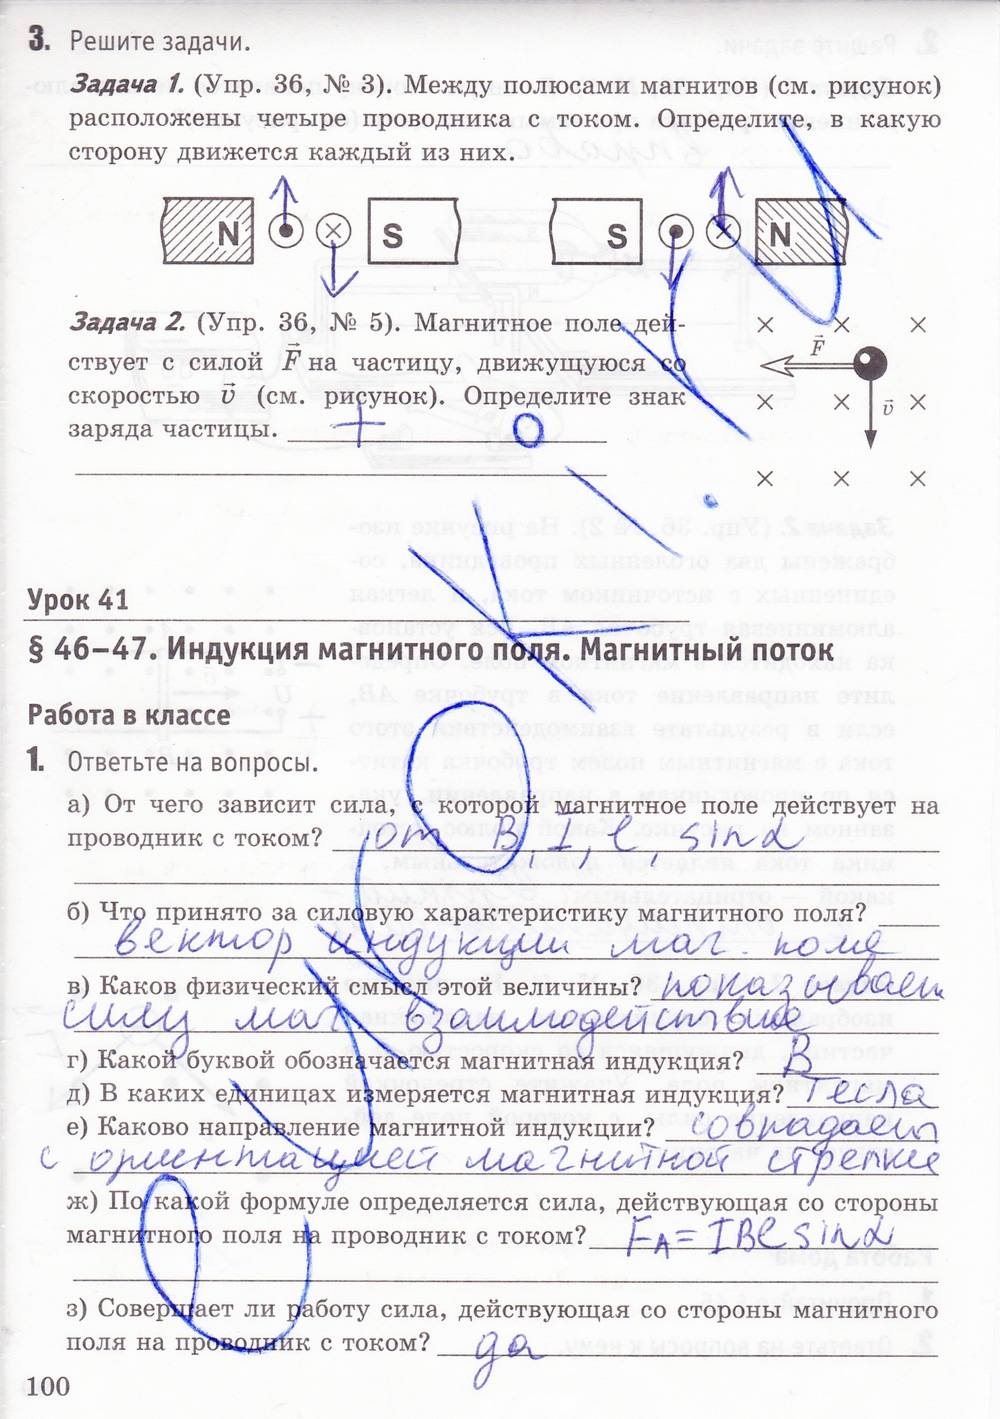 3. Решите задачи.
Задача 1. (Упр. 36, № 3). Между полюсами магнитов (см. рисунок)
расположены четыре проводника с током. Определите, в какую
сторону движется каждый из них.
N S S N
Задача 2. (Упр. 36, № 5). Магнитное поле дей-
ствует с силой F на частицу, движущуюся со
скоростью v (см. рисунок). Определите знак
заряда частицы. +
F
v
Урок 41
§ 46–47. Индукция магнитного поля. Магнитный поток
Работа в классе
1. Ответьте на вопросы.
а) От чего зависит сила, с которой магнитное поле действует на
проводник с током? от B, I, l, sinα
б) Что принято за силовую характеристику магнитного поля?
вектор индукции маг. поля
в) Каков физический смысл этой величины? показывает
силу маг. взаимодействие
г) Какой буквой обозначается магнитная индукция? B
д) В каких единицах измеряется магнитная индукция? Тесла
е) Каково направление магнитной индукции? совпадает
с ориентацией магнитной стрелки
ж) По какой формуле определяется сила, действующая со стороны
магнитного поля на проводник с током? FA = IBlsinα
з) Совершает ли работу сила, действующая со стороны магнитного
поля на проводник с током? да
100